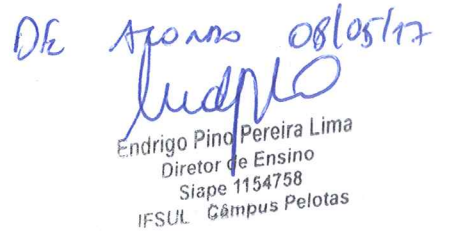 DE ACORDO 08/05/17
Endrigo Pino Pereira Lima
Diretor de Ensino
Siape 1154758
IFSUL Câmpus Pelotas